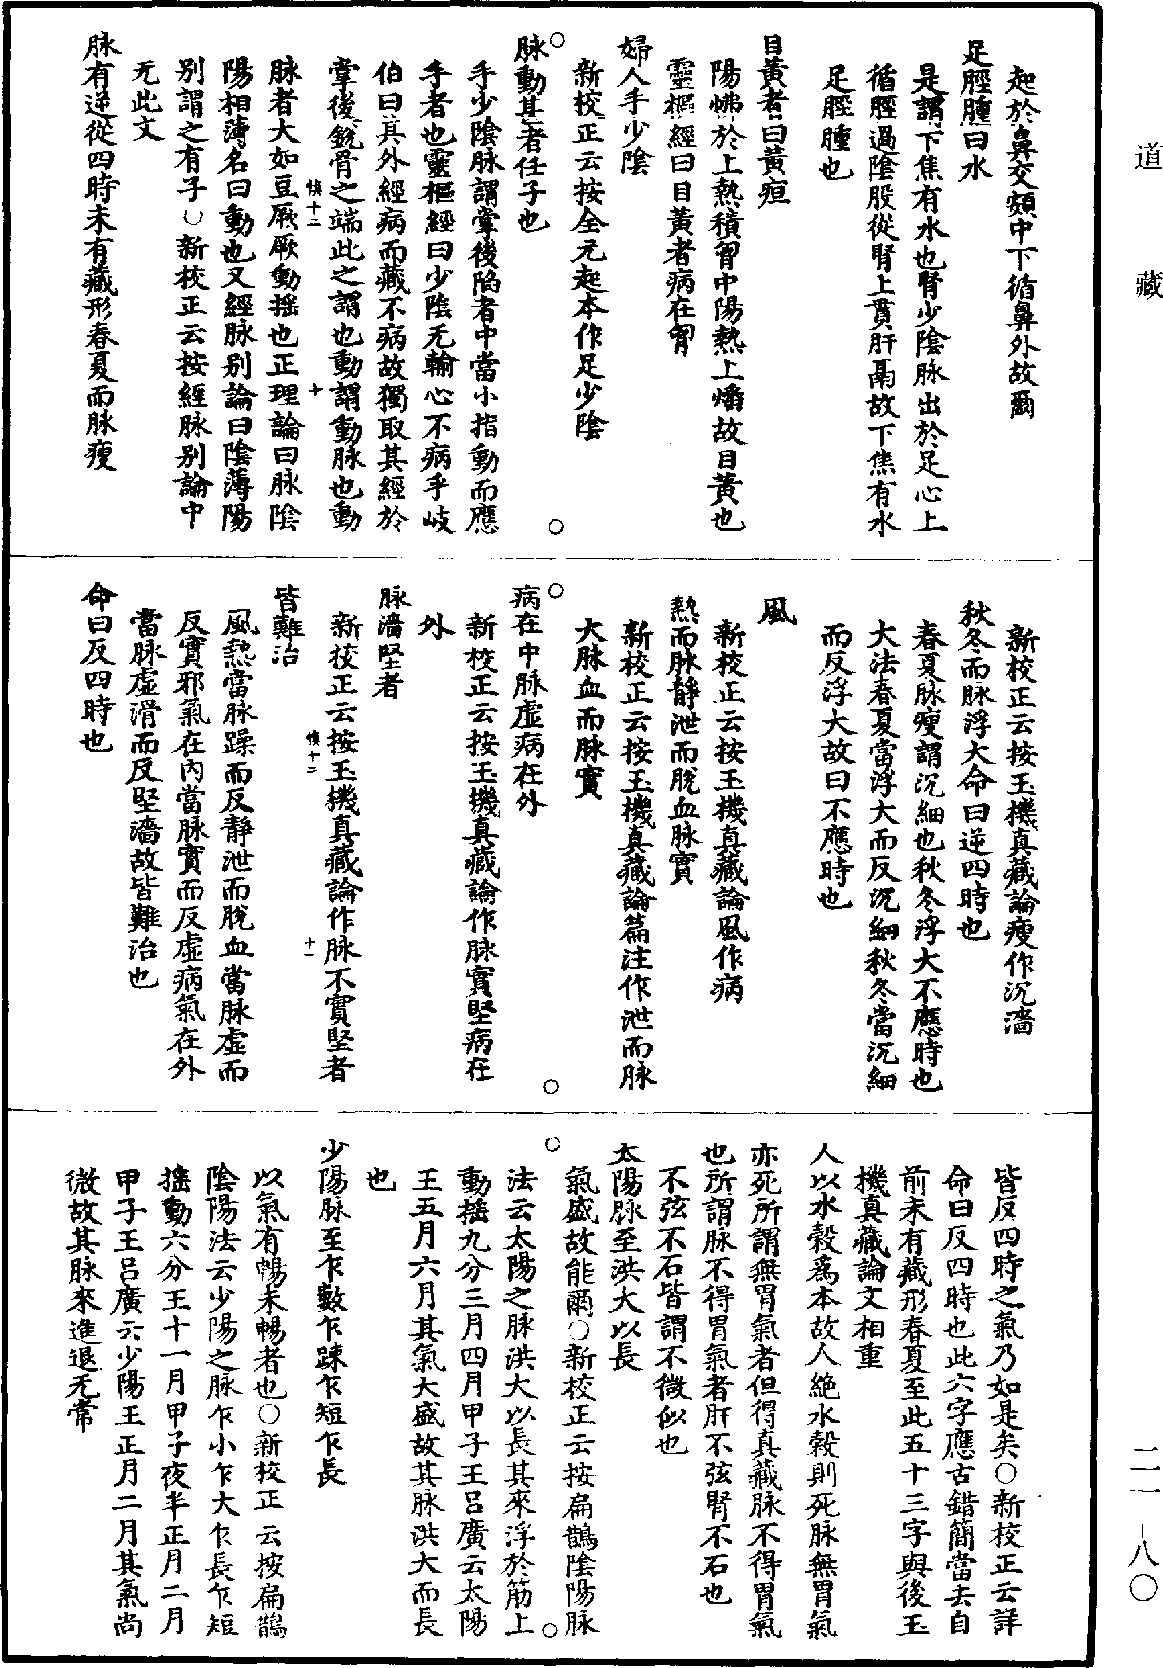 道藏
二一-八〇
起於鼻交頞中下循鼻外故爾
足脛腫曰水
是謂下焦有水也腎少陰脉出於足心上
循脛過陰股從腎上貫肝鬲故下焦有水
足脛腫也
目黃者曰黃疸
陽怫於上熱積胷中陽熱上燔故目黃也
靈樞經曰目黃者病在胷
婦人手少陰
新校正云按全元起本作足少陰
脉動甚者任子也
手少陰脉謂掌後陷者中當小指動而應
手者也靈樞經曰少陰无輸心不病乎岐
伯曰其外經病而藏不病故獨取其經於
掌後銳骨之端此之謂也動謂動脉也動
慎十二
十
脉者大如豆厥厥動摇也正理論曰脉陰
陽相薄名曰動也又經脉别論曰陰薄陽
别謂之有子○新校正云按經脉别論中
无此文
脉有逆從四時未有藏形春夏而脉瘦
新校正云按玉機真藏論瘦作沉濇
秋冬而脉浮大命曰逆四時也
春夏脉瘦謂沉細也秋冬浮大不應時也
大法春夏當浮大而反沉細秋冬當沉細
而反浮大故曰不應時也
風
新校正云按玉機真藏論風作病
熱而脉靜泄而脫血脉實
新校正云按玉機真藏論篇注作泄而脉
大脉血而脉實
病在中脉虛病在外
新校正云按玉機真藏論作脉實堅病在
外
脉濇堅者
新校正云按玉機真藏論作脉不實堅者
慎十二
十一
皆難治
風熱當脉躁而反靜泄而脫血當脉虛而
反實邪氣在內當脉實而反虛病氣在外
當脉虛滑而反堅濇故皆難治也
命曰反四時也
皆反四時之氣乃如是矣○新校正云詳
命曰反四時也此六字應古錯簡當去自
前未有藏形春夏至此五十三字與後玉
機真藏論文相重
人以水穀爲本故人絶水穀則死脉無胃氣
亦死所謂無胃氣者但得真藏脉不得胃氣
也所謂脉不得胃氣者肝不弦腎不石也
不弦不石皆謂不微似也
太陽脉至洪大以長
氣盛故能爾○新校正云按扁鵲陰陽脉
法云太陽之脉洪大以長其來浮於筋上
動摇九分三月四月甲子王吕廣云太陽
王五月六月其氣大盛故其脉洪大而長
也
少陽脉至乍數乍踈乍短乍長
以氣有暢未暢者也○新校正云按扁鵲
陰陽法云少陽之脉乍小乍大乍長乍短
摇動六分王十一月甲子夜半正月二月
甲子王吕廣云少陽王正月二月其氣尚
微故其脉來進退无常